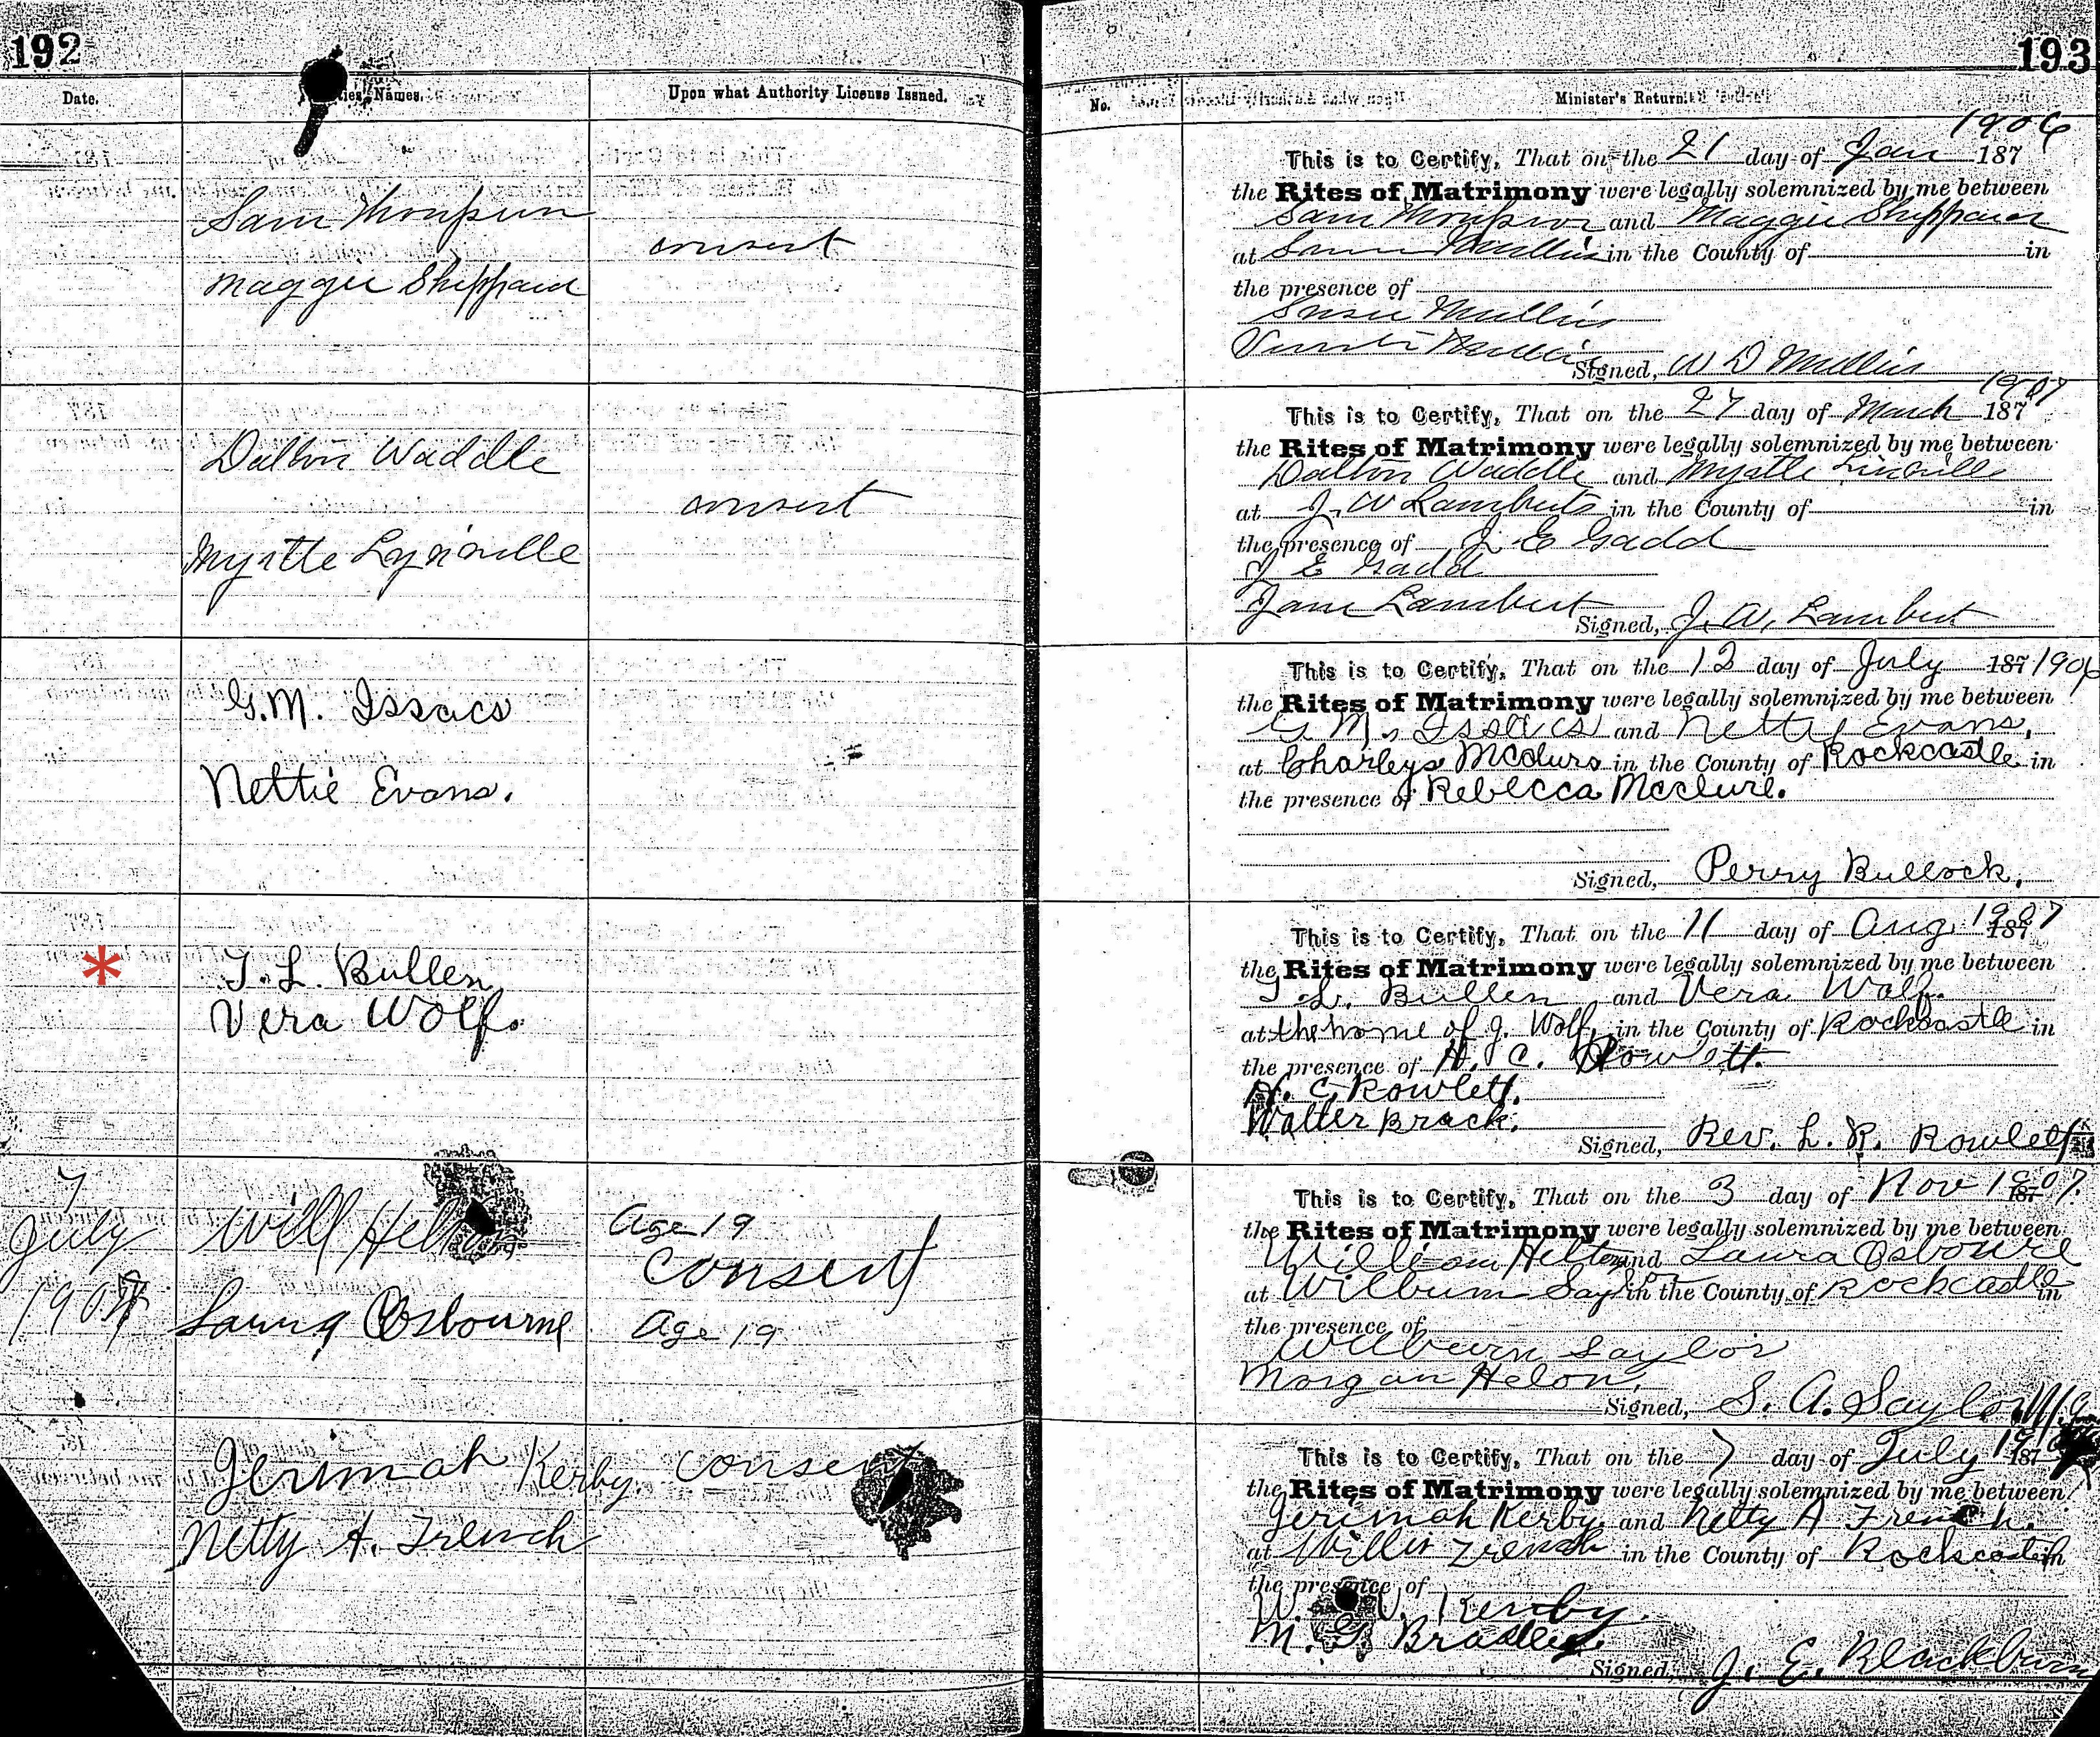 192
Date.
Names.
Upon what Authority License Issued.
Sam Thompson
Maggie Shippard
consent
Dalton Waddle
Myrtle Lynville
consent
G.M. Issacs
Nettie Evans.
*
T. L. Bullen
Vera Wolf.
7
July
1907
Will Helton
Laura Osbourne
Age 19
Consent
Age 19
Jerimah Kerby.
Netty A. French
Consent
193
No.
Minister's Return.
1906
This is to Certify, That on the 21 day of Jan 187
the Rites of Matrimony were legally solemnized by me between
Sam Thompson and Maggie Shippard
at Mullins in the County of in
the presence of
Susie Mullins
Mullins
Signed, W D Mullins
1907
This is to Certify, That on the 27 day of March 187
the Rites of Matrimony were legally solemnized by me between
Dalton Waddle and Myrtle Linville
at J. W Lamberts in the County of in
the presence of J E Gadd
J E Gadd
Jane Lambert
Signed, J. W. Lambert
This is to Certify, That on the 12 day of July 187 1906
the Rites of Matrimony were legally solemnized by me between
G. M. Issacs and Netty Evans,
at Charleys McClurs in the County of Rockcastle in
the presence of Rebecca McClure.
Signed, Perry Bullock,
This is to Certify, That on the 11 day of Aug. 1907 187
the Rites of Matrimony were legally solemnized by me between
T. L. Bullen and Vera Wolf.
at the home of J. Wolf, in the County of Rockcastle in
the presence of H. C. Rowlett.
H. C. Rowlett.
Walter Brack.
Signed, Rev. L. R. Rowlett
This is to Certify, That on the 3 day of Nov 1907. 187
the Rites of Matrimony were legally solemnized by me between
William Helton and Laura Osbourne
at Wilburn Saylor in the County of Rockcastle in
the presence of
Wilburn Saylor
Morgan Helon,
Signed, S. A. Saylor M.G.
This is to Certify, That on the 7 day of July 187
the Rites of Matrimony were legally solemnized by me between
Jerimah Kerby. and Netty A French.
at Willis French in the County of Rockcastle in
the presence of
W. Kerby.
M. Bradley.
Signed, J. E. Blackburn